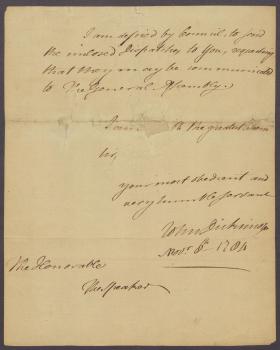 I am desired by Council, to send
the inclosed Dispatches to You, requesting
that they may be communicated
to The General Assembly.
I am with the greatest
Sir,
your most obedient and
very humble servant
John Dickinson
Novr. 8th 1784
The Honorable
The Speaker